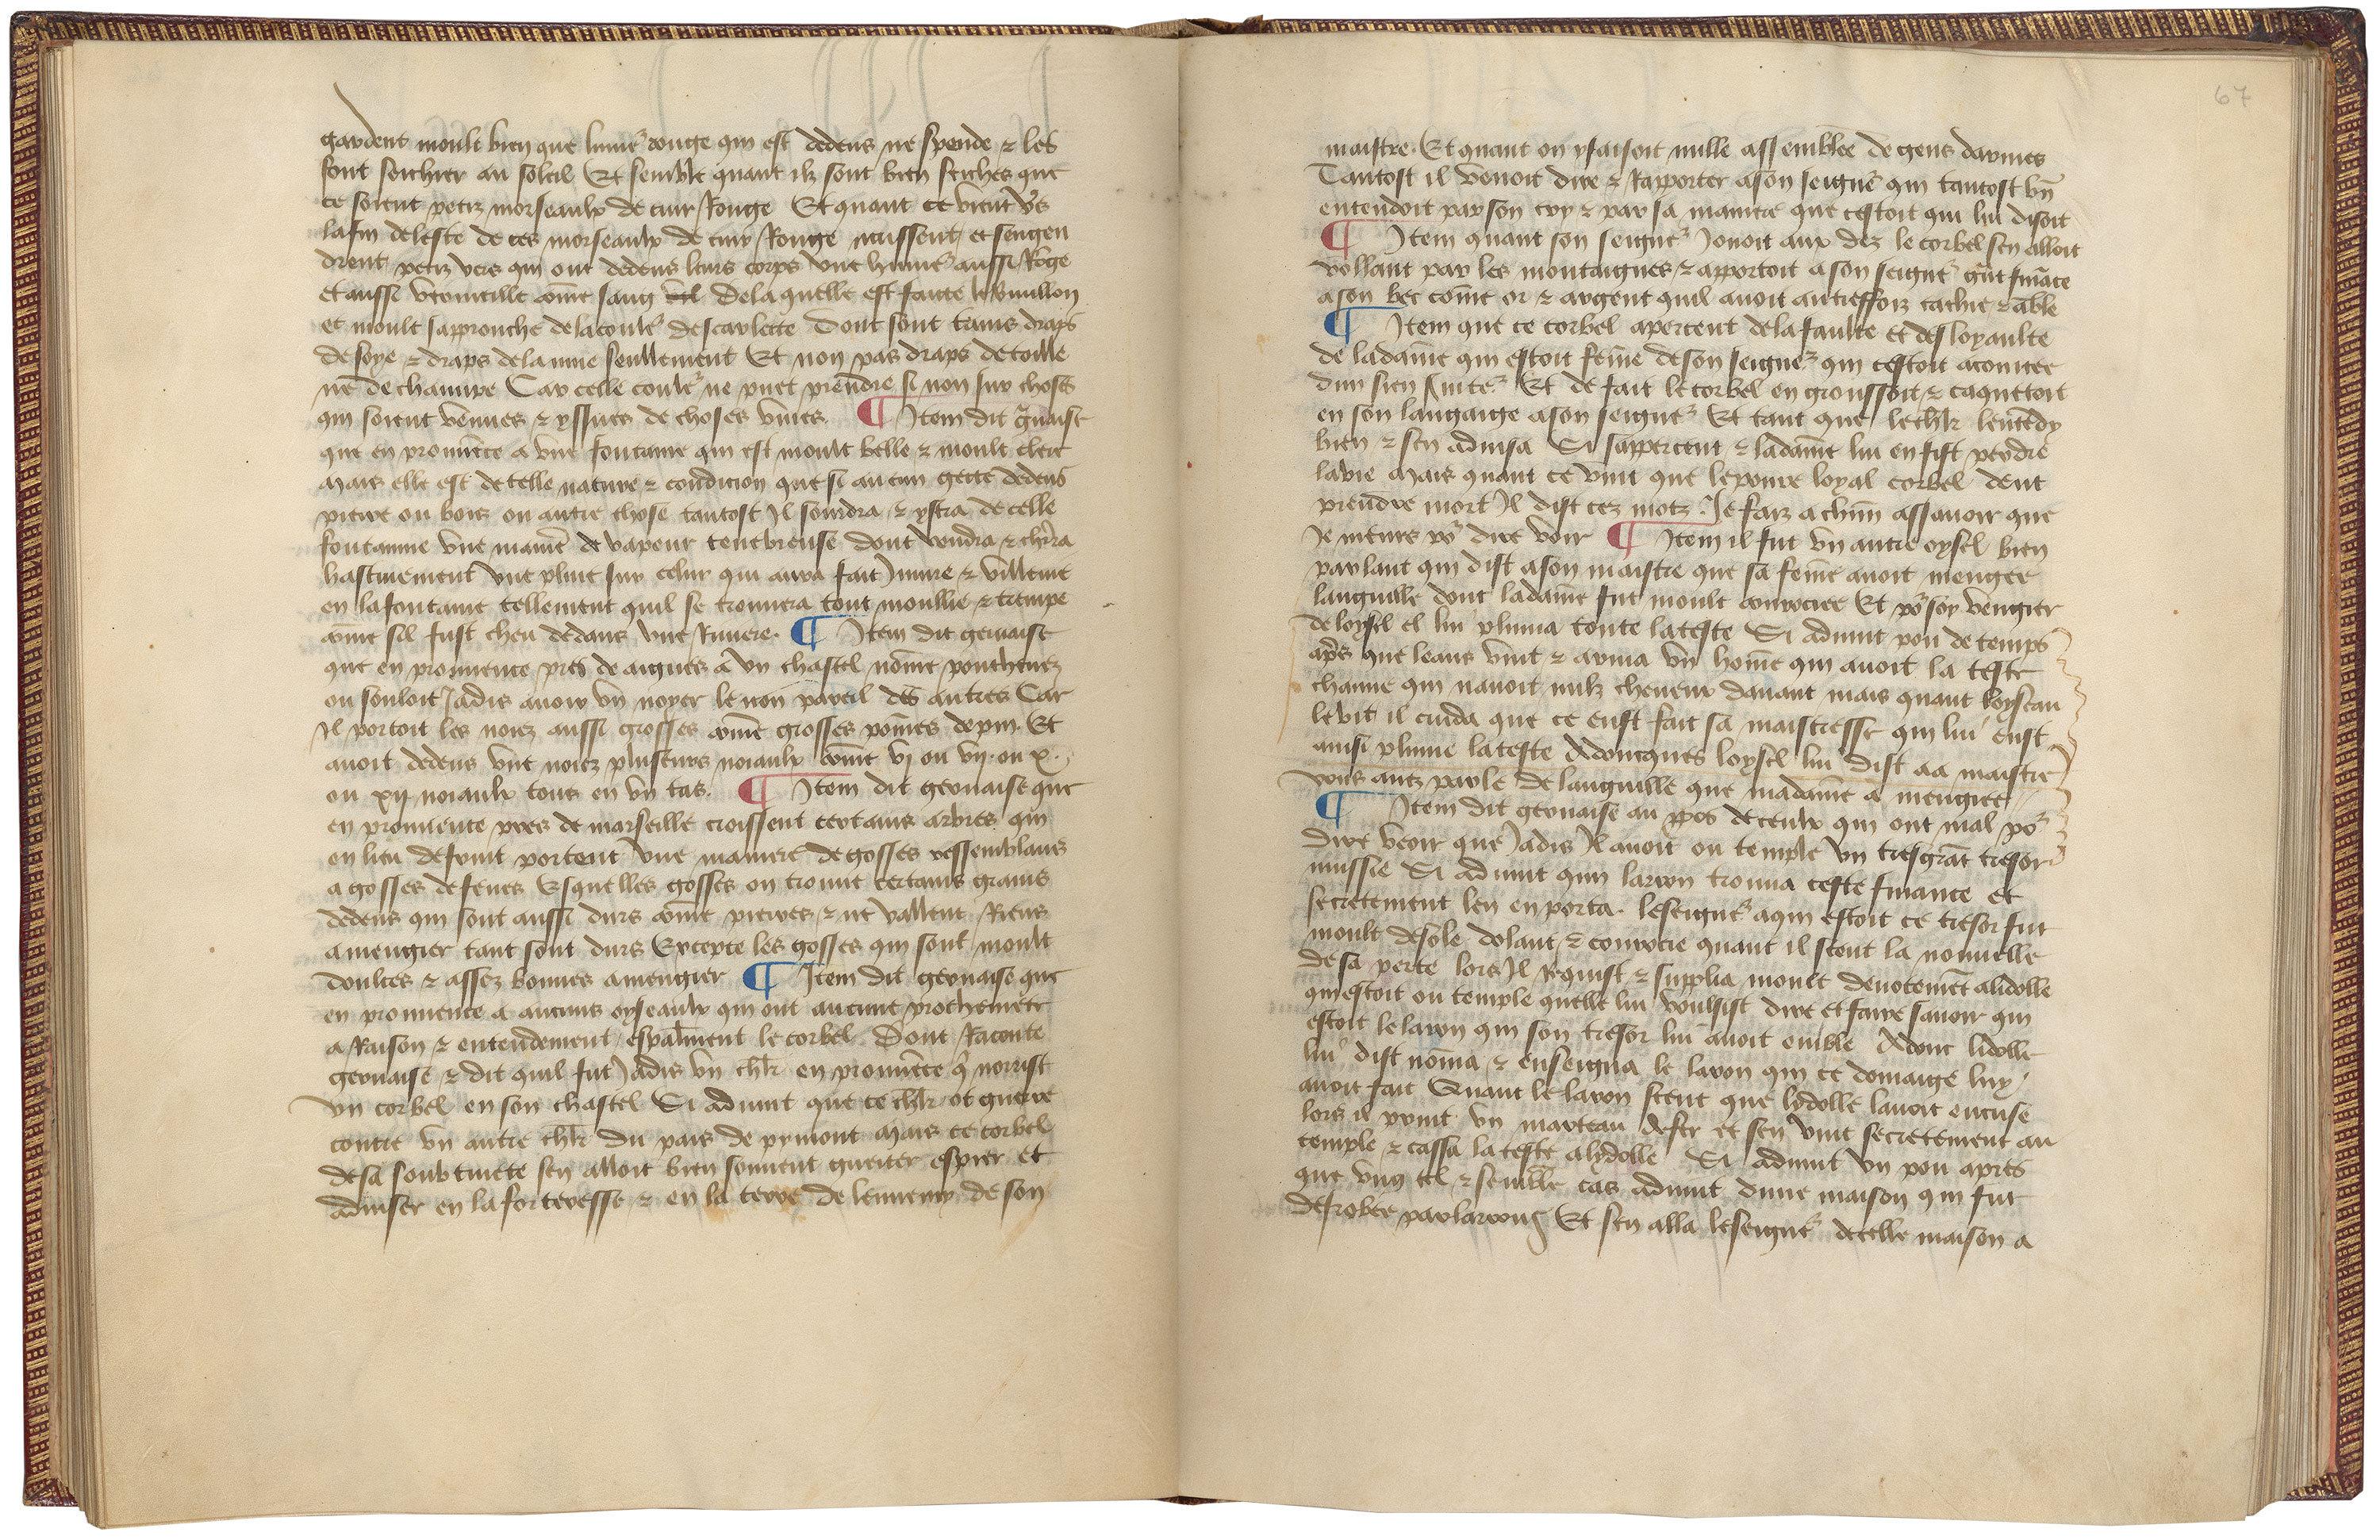 gardent moult bien que lumeʳ rouge qui est dedens ne spende ⁊ les
font seichier au soleil Et semble quant ilz sont bien seiches que
ce soient petiz morseaulx de cuir Rouge Et quant ce vient vs̄
la fin deleste de ces morseaulx de cuir Rouge naissent et sengen
drent petiz vers qui ont dedens leurs corps vne humeʳ aussi Roge
et aussi vermeille cōme sang dela quelle est faicte le vmillon
et moult sapprouche dela couleʳ descarlecte Dont sont tains draps
de soye ⁊ draps de laine seullement Et non pas draps de toille
ne de chanure Car celle couleʳ ne puet prendre si non sur choses
qui soient venues ⁊ yssues de choses viues. ¶ Item dit gervaise
que en prouuēce a vne fontaine qui est moult belle ⁊ moult clere
Mais elle est de telle nature ⁊ condicion que si aucun gecte dedens
pierre ou bois ou autre chose tantost Il sourdra ⁊ ystra de celle
fontainne vne maniere de vapeur tenebreuse dont vendra ⁊ cherra
hastiuement vne pluie sur celui qui aura fait Iniure ⁊ villenie
en la fontaine tellement quil se trouuera tout moullie ⁊ trempe
cōme sil fust cheu dedans vne Riuiere. ¶ Item dit gervaise
que en prouuence pres de aigues a vn chastel nōme ponthenez
ou souloit Iadis auoir vn noyer le non pareil des autres Car
Il portoit les noiz aussi grosses cōme grosses pōmes de pin Et
auoit dedens vne noiz plusieurs noiaulx cōme vj ou vij ou x.
ou xij noiaulx tous en vn tas. ¶ Item dit gervaise que
en prouuence pres de marseille croissent certains arbres qui
en lieu de fruit portent vne maniere de gosses ressemblans
a gosses de feues Esquelles gosses on trouue certains grains
dedens qui sont aussi durs cōme pierres ⁊ ne vallent Riens
a mengier tant sont durs Excepte les gosses qui sont moult
doulces ⁊ assez bonnes a mengier ¶ Item dit gervaise que
en prouuence a aucuns oyseaulx qui ont aucune prochenete
a Raison ⁊ entendement espālment le corbel. Dont Raconte
gervaise ⁊ dit quil fut Iadis vn chlr en prouuēce qͥ norrist
vn corbel en son chastel Si aduint que ce chlr ot guerre
contre vn autre chlr du pais de pymont Mais ce corbel
de sa soubtiuete sen alloit bien souuent gueiter espier et
aduiser en la forteresse ⁊ en la terre de lennemy de son
67
maistre. Et quant on y faisoit nulle assemblee de gens darmes
Tantost il venoit dire ⁊ Rapporter a son seigneʳ qui tantost bn̄
entendoit par son cry ⁊ par sa maniere que cestoit qui lui disoit
¶ Item quant son seigneʳ Iouoit aux dez le corbel sen alloit
vollant par les montaignes ⁊ apportoit a son seigneʳ gūt fināce
a son bec cōme or ⁊ argent quil auoit autreffoiz cachie ⁊ āble
¶ Item que ce corbel aperceut dela faulte et desloyaulte
de la dame qui estoit fēme de son seigneʳ qui cestoit acointee
dun sien Et de fait le corbel en groussoit ⁊ caquettoit
en son langaige a son seigneʳ Et tant que le chlr lentēdy
bien ⁊ sen aduisa Si sapperceut ⁊ la dame lui en fist perdre
la vie Mais quant ce vint que le poure loyal corbel deut
prendre mort Il dist cez motz. Ie faiz a chūn assauoir que
Ie meurs poʳ dire voir ¶ Item il fut vn autre oysel bien
parlant qui dist a son maistre que sa fēme auoit mengee
languille dont la dame fut moult courrocee Et poʳ soy vengier
de loysel el lui pluma toute la teste Si aduint pou de temps
apēs que leans vint ⁊ arriua vn hōme qui auoit la teste
chauue qui nauoit nulz cheueux dauant mais quant loyseau
le vit il cuida que ce eust fait sa maistresse qui lui eust
ainsi plume la teste Adoncques loysel lui dist aa maistre
vous auez parle de languille que madame a mengiee
¶ Item dit gervaise au ppos de ceulx qui ont mal poʳ
dire veoir que Iadis Il auoit ou temple vn tresgrāt tresor
mussie Si aduint qun larron trouua ceste finance et
secretement len en porta. le seigneʳ a qui estoit ce tresor fut
moult desole dolant ⁊ courrocie quant il sceut la nouuelle
de sa perte lors Il Requist ⁊ supplia moult deuotemēt a lidolle
qui estoit ou temple quelle lui voulsist dire et faire sauoir qui
estoit le larron qui son tresor lui auoit emble Adonc lidolle
lui dist nōma ⁊ enseigna le laron qui ce domaige luy
auoit fait Quant le laron sceut que lydolle lauoit encuse
lors il print vn marteau de fer et sen vint secretement au
temple ⁊ cassa la teste a lydolle Si aduint vn pou apres
que vng tel ⁊ semble cas aduint dune maison qui fut
desrobee par larrons Et sen alla le seigneʳ de celle maison a